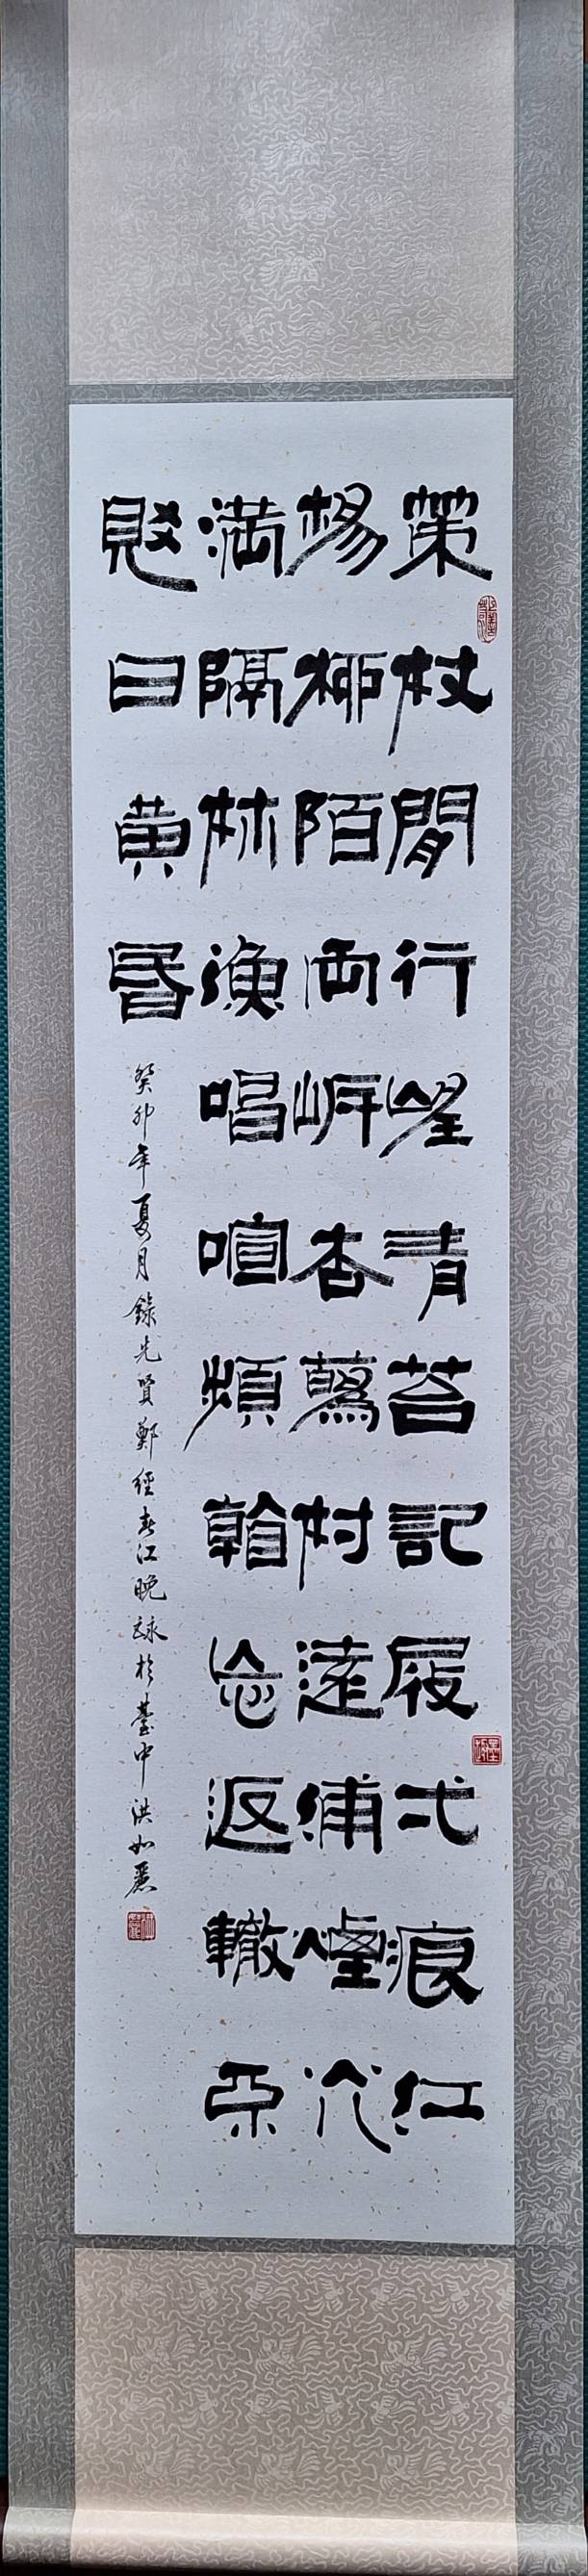 策杖閒行望青苔記屐弌痕江
楊柳陌兩岸杏蘤村遠浦煙
滿隔林漁唱喧頻忘返轍
日黃昏
癸卯年夏月錄先賢鄭經春江晚詠於臺中洪如麗